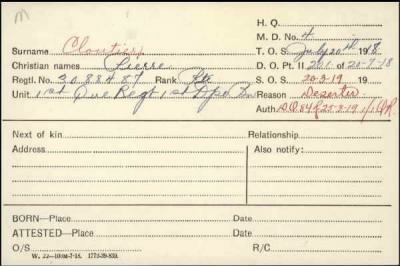 M
H. Q.
M. D. No. 4
Surname Cloutier, T. O. S. July 20th 1918
Christian names Pierre D. O. Pt. II 201 of 20-7-18
Regtl. No. 3088487 Rank Pte S. O. S. 20-3-19 19
Unit 1st Que Regt 1st Dpo Bn Reason Deserter
Auth. D.O. 84 of 25-3-19
Next of kin Relationship
Address Also notify:
BORN—Place Date
ATTESTED—Place Date
O/S R/C
W. 22—100M-7-18. 1772-39-839.